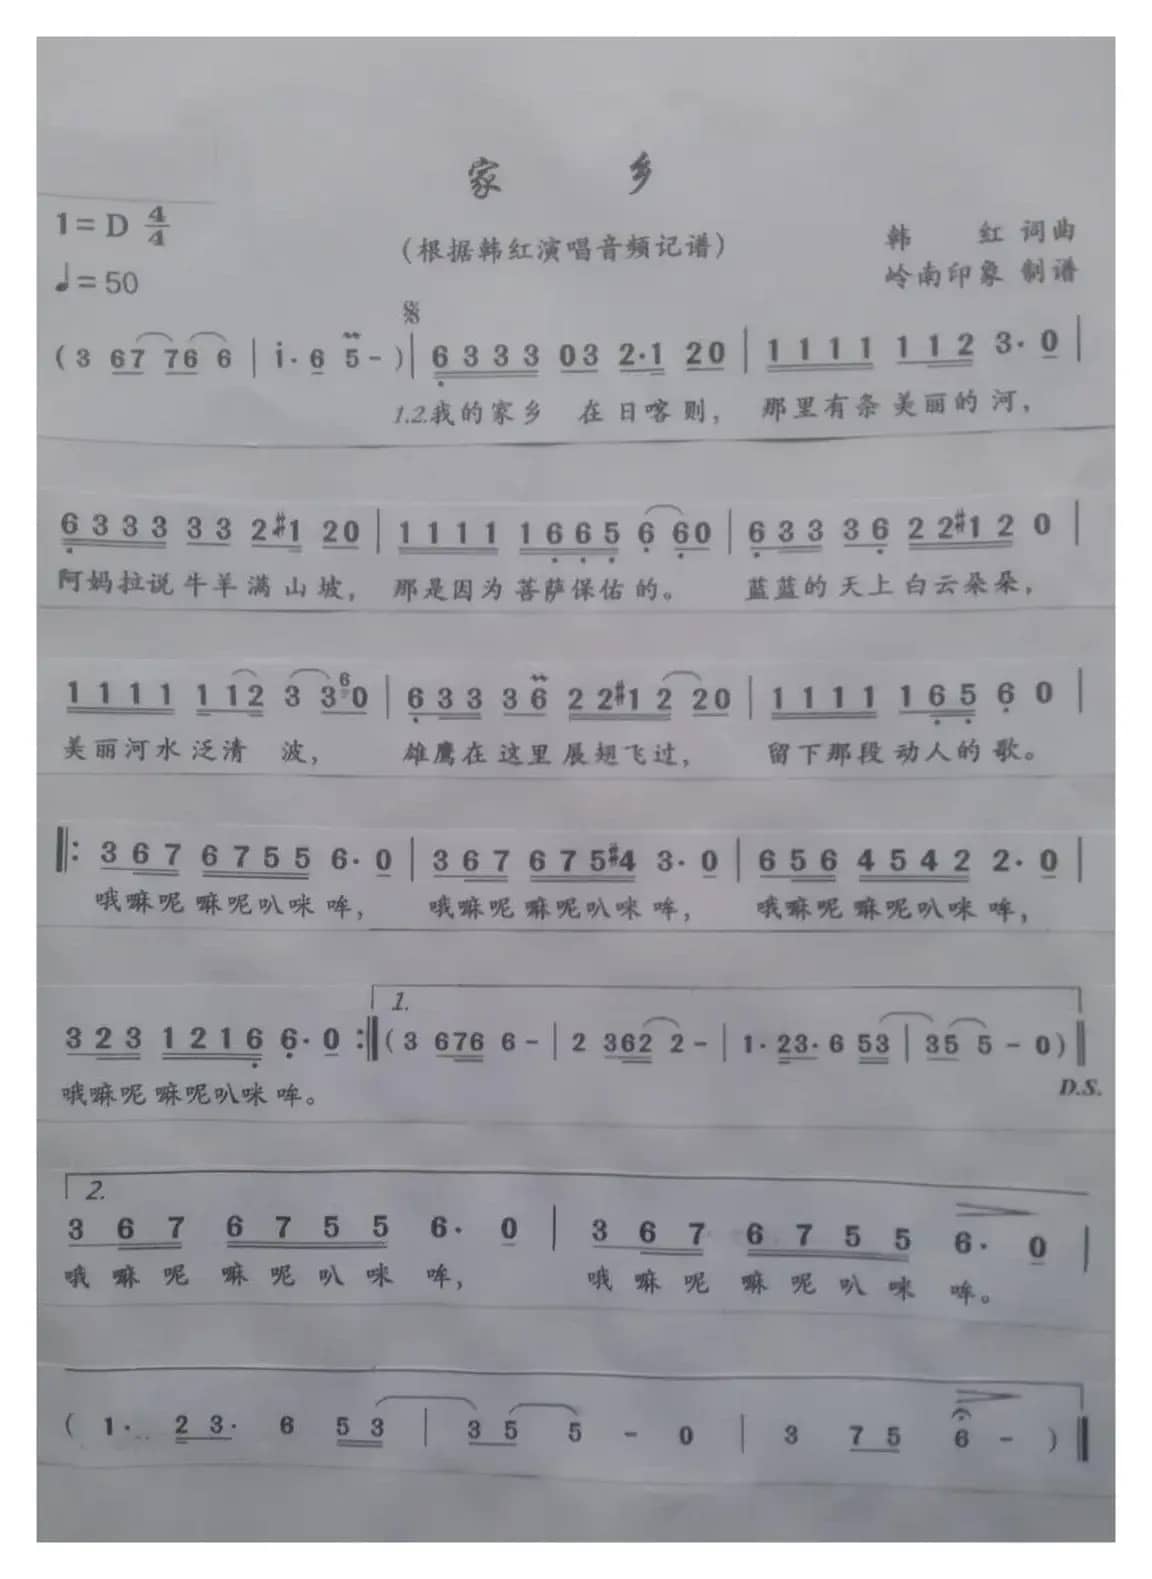 家 乡
1=D 4/4
(根据韩红演唱音频记谱)
韩 红 词曲
♩=50
岭南印象 制谱
( 3 67 76 6 | i· 6 5 - ) | 6 3 3 3 03 2·1 20 | 1 1 1 1 1 1 2 3· 0 |
1.2.我的家乡 在日喀则, 那里有条美丽的河,
6 3 3 3 3 3 2 #1 20 | 1 1 1 1 1 6 6 5 6 60 | 6 3 3 3 6 2 2 #1 2 0 |
阿妈拉说牛羊满山坡, 那是因为菩萨保佑的。 蓝蓝的天上白云朵朵,
1 1 1 1 1 1 2 3 3 6 0 | 6 3 3 3 6 2 2 #1 2 20 | 1 1 1 1 1 6 5 6 0 |
美丽河水泛清 波, 雄鹰在这里展翅飞过, 留下那段动人的歌。
‖: 3 6 7 6 7 5 5 6· 0 | 3 6 7 6 7 5 #4 3· 0 | 6 5 6 4 5 4 2 2· 0 |
哦嘛呢 嘛呢叭咪哞, 哦嘛呢 嘛呢叭咪哞, 哦嘛呢 嘛呢叭咪哞,
1.
3 2 3 1 2 1 6 6· 0 :‖ ( 3 676 6 - | 2 362 2 - | 1· 23· 6 53 | 35 5 - 0 ) ‖
哦嘛呢 嘛呢叭咪哞。
D.S.
2.
3 6 7 6 7 5 5 6· 0 | 3 6 7 6 7 5 5 6· 0 |
哦嘛呢 嘛呢叭咪哞, 哦嘛呢 嘛呢叭咪哞。
( 1· 2 3· 6 5 3 | 3 5 5 - 0 | 3 7 5 6 - ) ‖